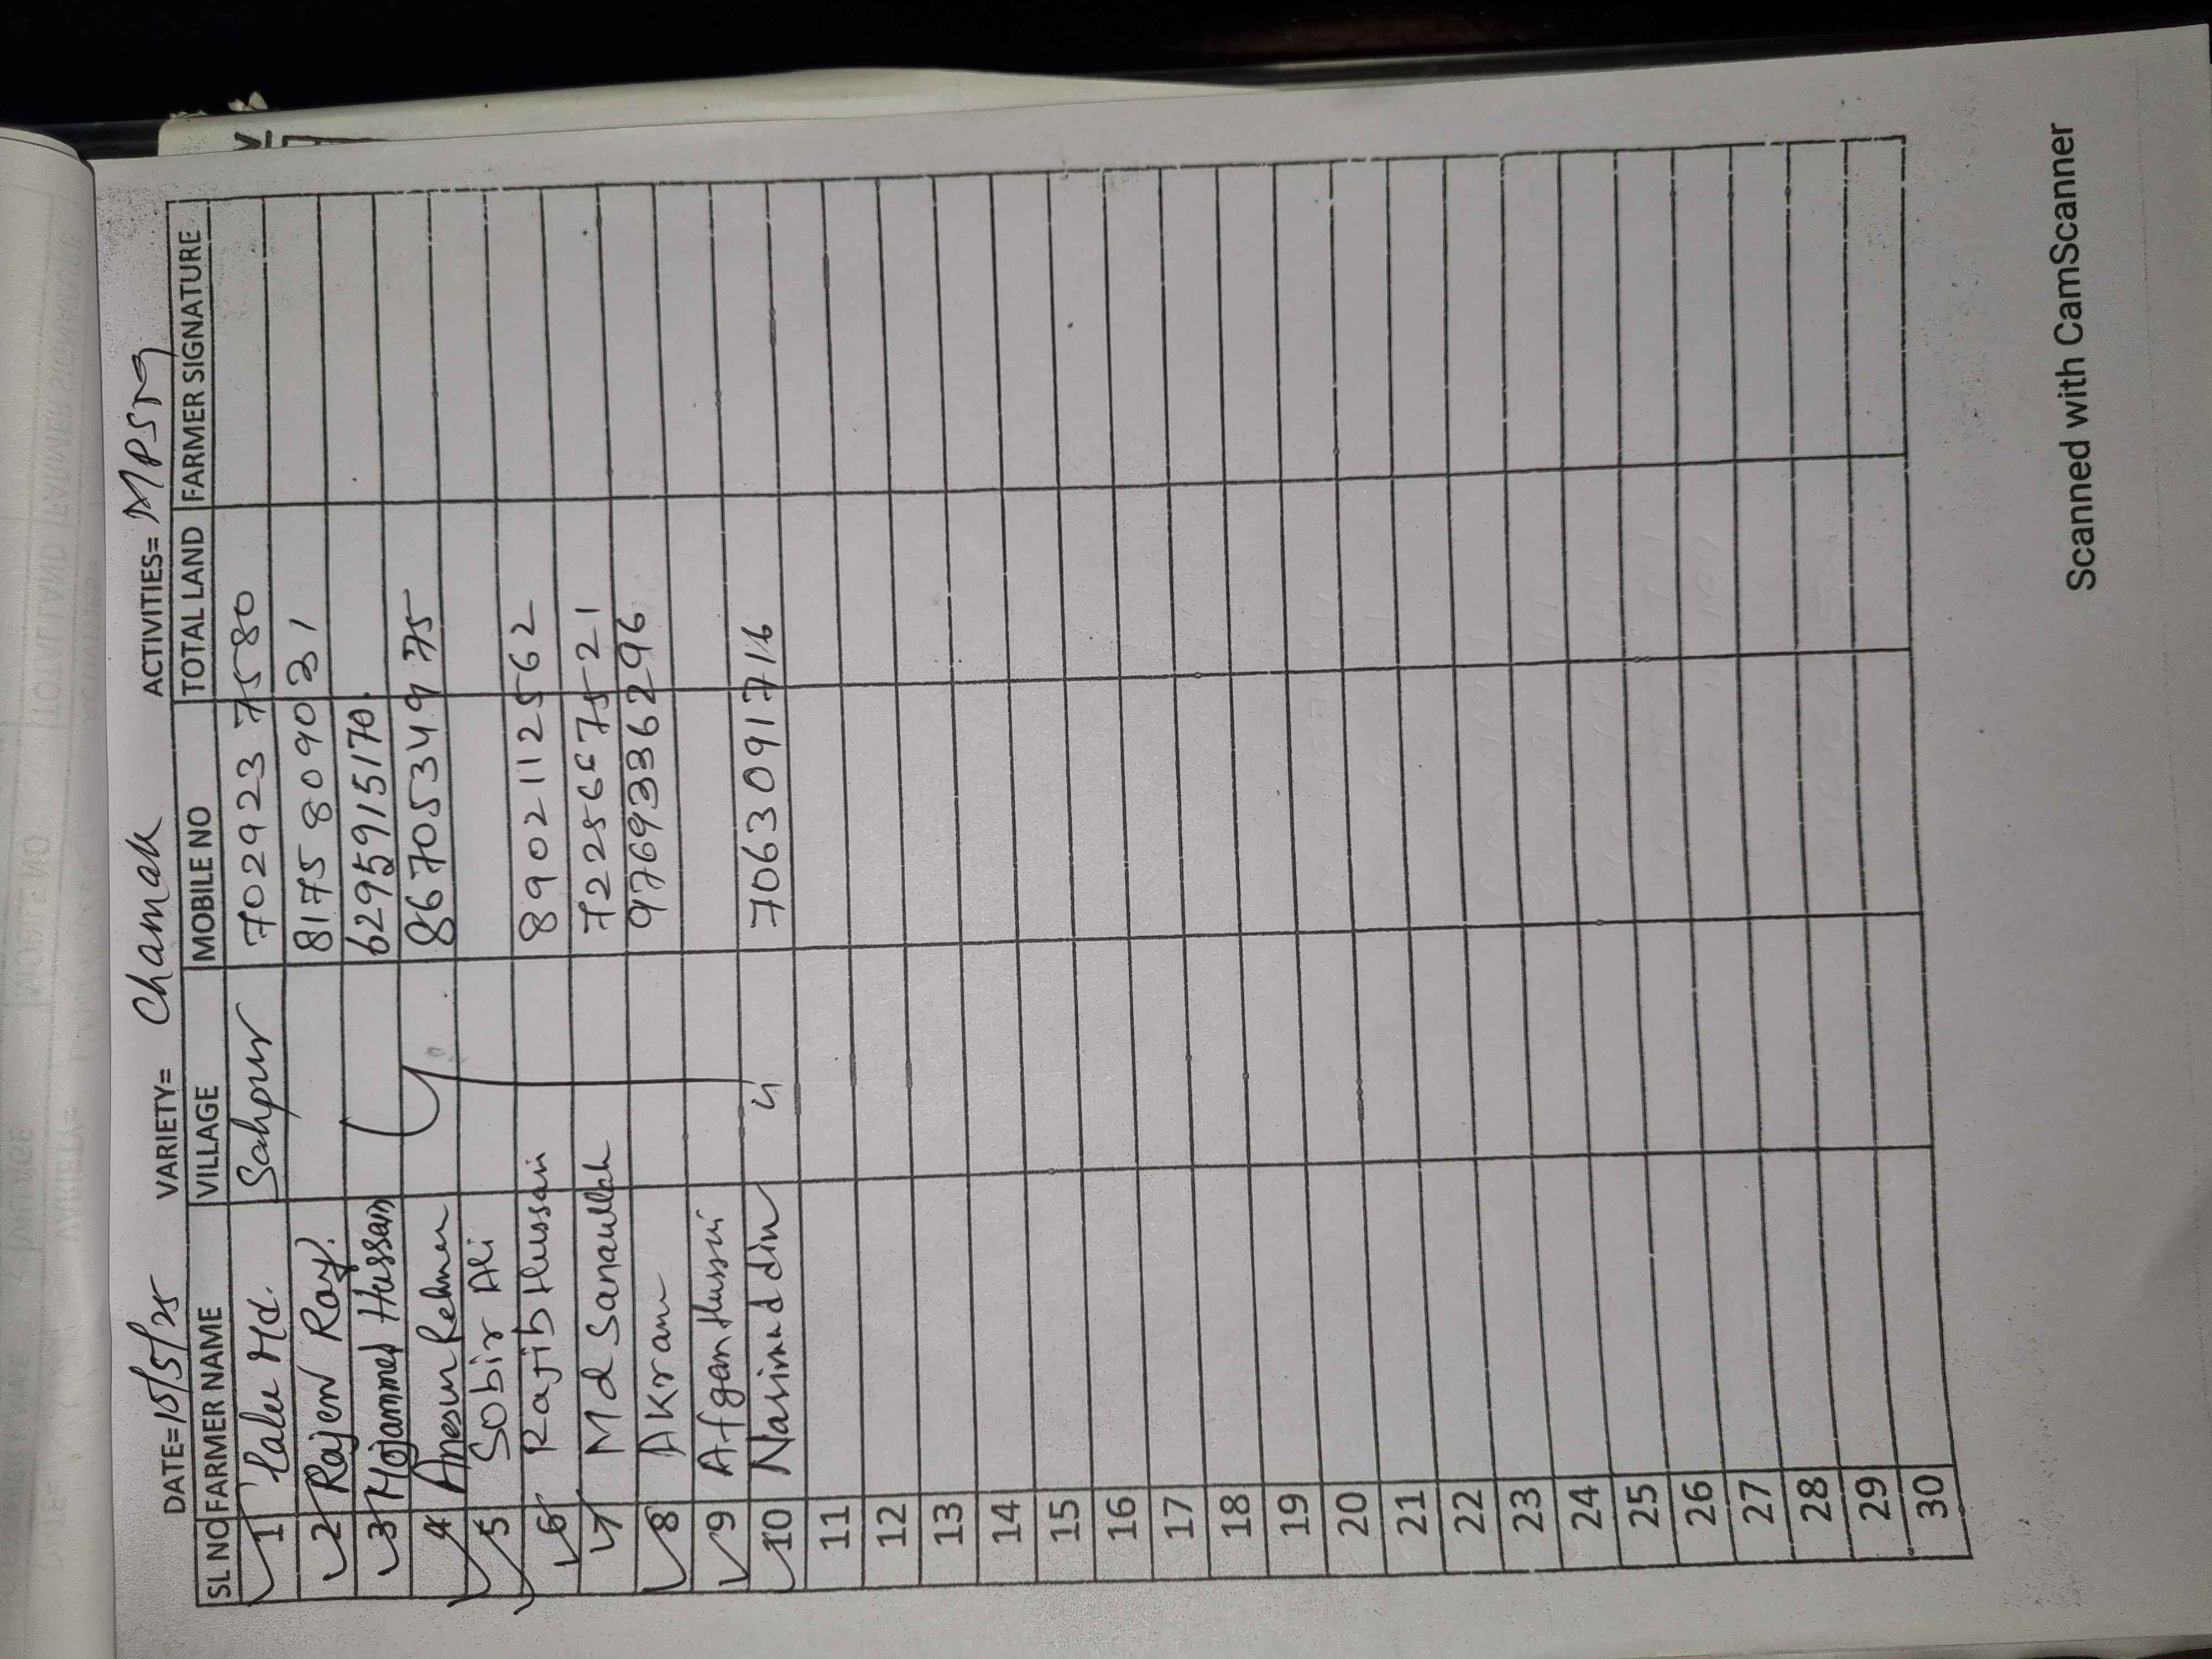 DATE= 15/5/25 VARIETY= Chamak ACTIVITIES= MPSM
SL NO FARMER NAME VILLAGE MOBILE NO TOTAL LAND FARMER SIGNATURE
1 Lalu Md. Sahpur 7029237580
2 Rajen Ray. 8175809031
3 Mojammel Hussain 6295915170.
4 Anesur Rehman 8670534975
5 Sobir Ali
6 Rajib Hussain 8902112562
7 Md Sanaullah 7225667521
8 Akram 9769336296
9 Afgan Hussin
10 Nasimuddin " 7063091716
11
12
13
14
15
16
17
18
19
20
21
22
23
24
25
26
27
28
29
30
Scanned with CamScanner